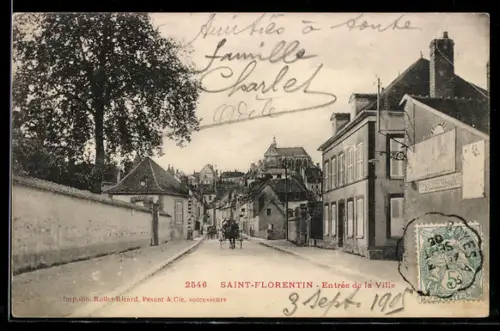 Amitiés à toute la
famille
Charlet
Adèle
2546 SAINT-FLORENTIN - Entrée de la Ville
Imp. Rollet-Bicard, Pesant & Cie, successeurs
3 Sept. 190
5